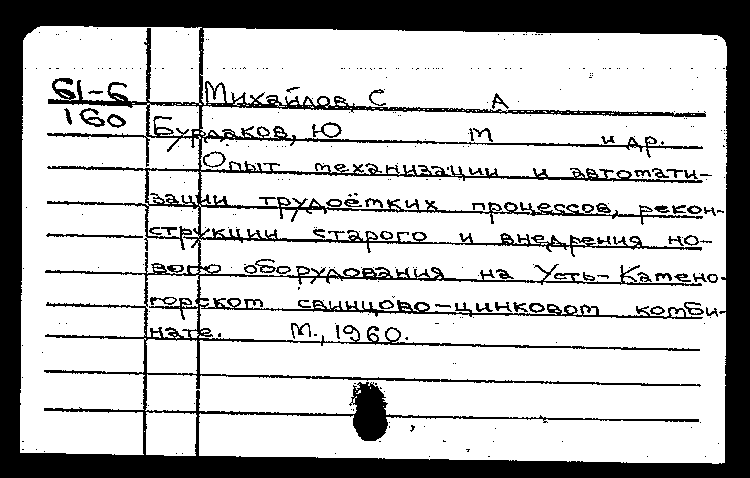 61-6
160
Михайлов, С А
Бурдаков, Ю М и др.
Опыт механизации и автомати-
зации трудоёмких процессов, рекон-
струкции старого и внедрения но-
вого оборудования на Усть-Камено-
горском свинцово-цинковом комби-
нате. М., 1960.